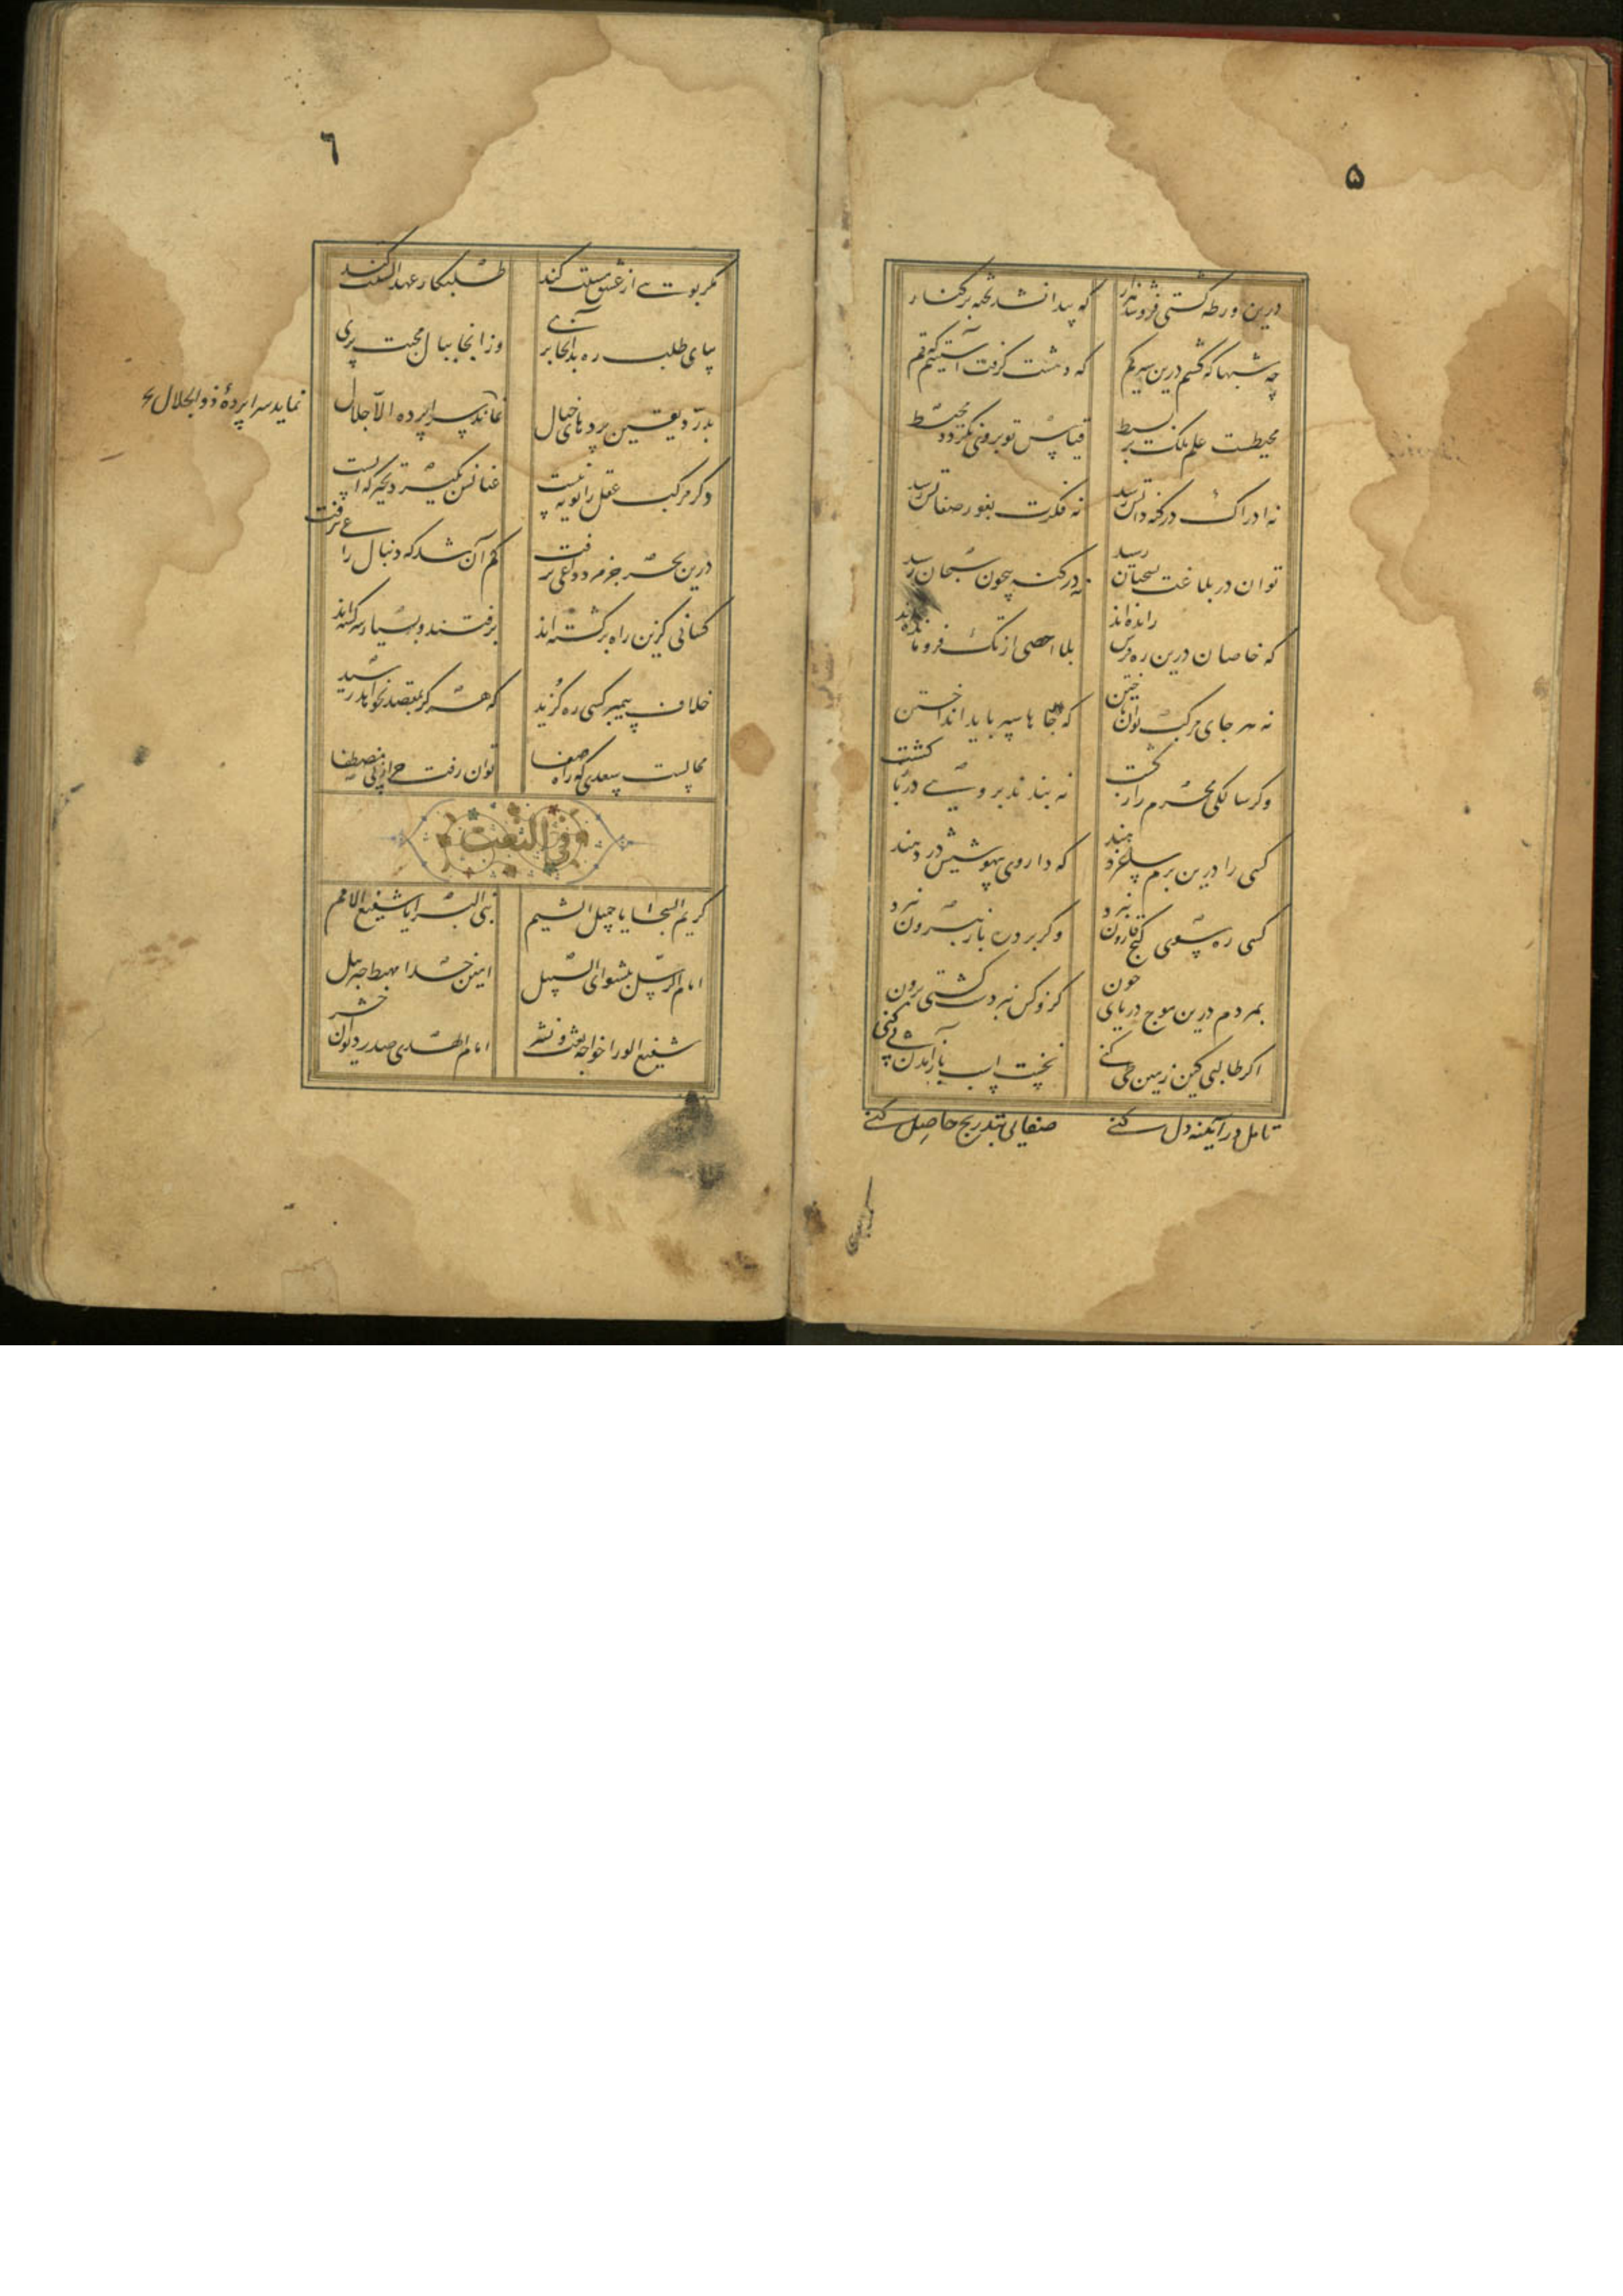 ۵
درین ورطه کشتی فروشد هزار که پیدا نشد تخته بر کنار
چه شبها که گشتم درین سیر گم که دهشت گرفت آستینم که قم
محیطست علم ملک بر بسیط قیاس تو بر وی نگردد محیط
نه ادراک در کنه ذاتش رسد نه فکرت بغور صفاتش رسد
توان در بلاغت بسحبان رسید نه در کنه بیچون سبحان رسید
که خاصان درین ره فرس رانده اند بلا احصی از تک فرو مانده اند
نه هر جای مرکب توان تاختن که جاها سپر باید انداختن
وگر سالکی محرم راز گشت نه بندند بر وی در بازگشت
کسی را درین بزم ساغر دهند که داروی بیهوشیش در دهند
کسی ره سوی گنج قارون نبرد وگر برد ره باز بیرون نبرد
بمردم درین موج دریای خون کزو کس نبردست کشتی برون
اگر طالبی کین زمین طی کنی نخست اسب باز آمدن پی کنی
تامل در آیینه دل کنی صفایی بتدریج حاصل کنی
٦
مگر بویی از عشق مستت کند طلبکار عهد الستت کند
بپای طلب ره بدانجا بری وز انجا ببال محبت پری
بدرد یقین پردهای خیال نماند سراپرده الا جلال
نماید سراپردهٔ ذوالجلال
دگر مرکب عقل را پویه نیست عنانش بگیرد تحیر که ایست
درین بحر جز مرد داعی نرفت گم آن شد که دنبال راعی نرفت
کسانی کزین راه برگشته اند برفتند و بسیار سرگشته اند
خلاف پیمبر کسی ره گزید که هرگز بمقصد نخواهد رسید
محالست سعدی که راه صفا توان رفت جز از پی مصطفا
فی النعت
کریم السجایا جمیل الشیم نبی البرایا شفیع الامم
امام الرسل پیشوای السبیل امین خدا مهبط جبرئیل
شفیع الورا خواجه بعث و نشر امام الهدی صدر دیوان حشر